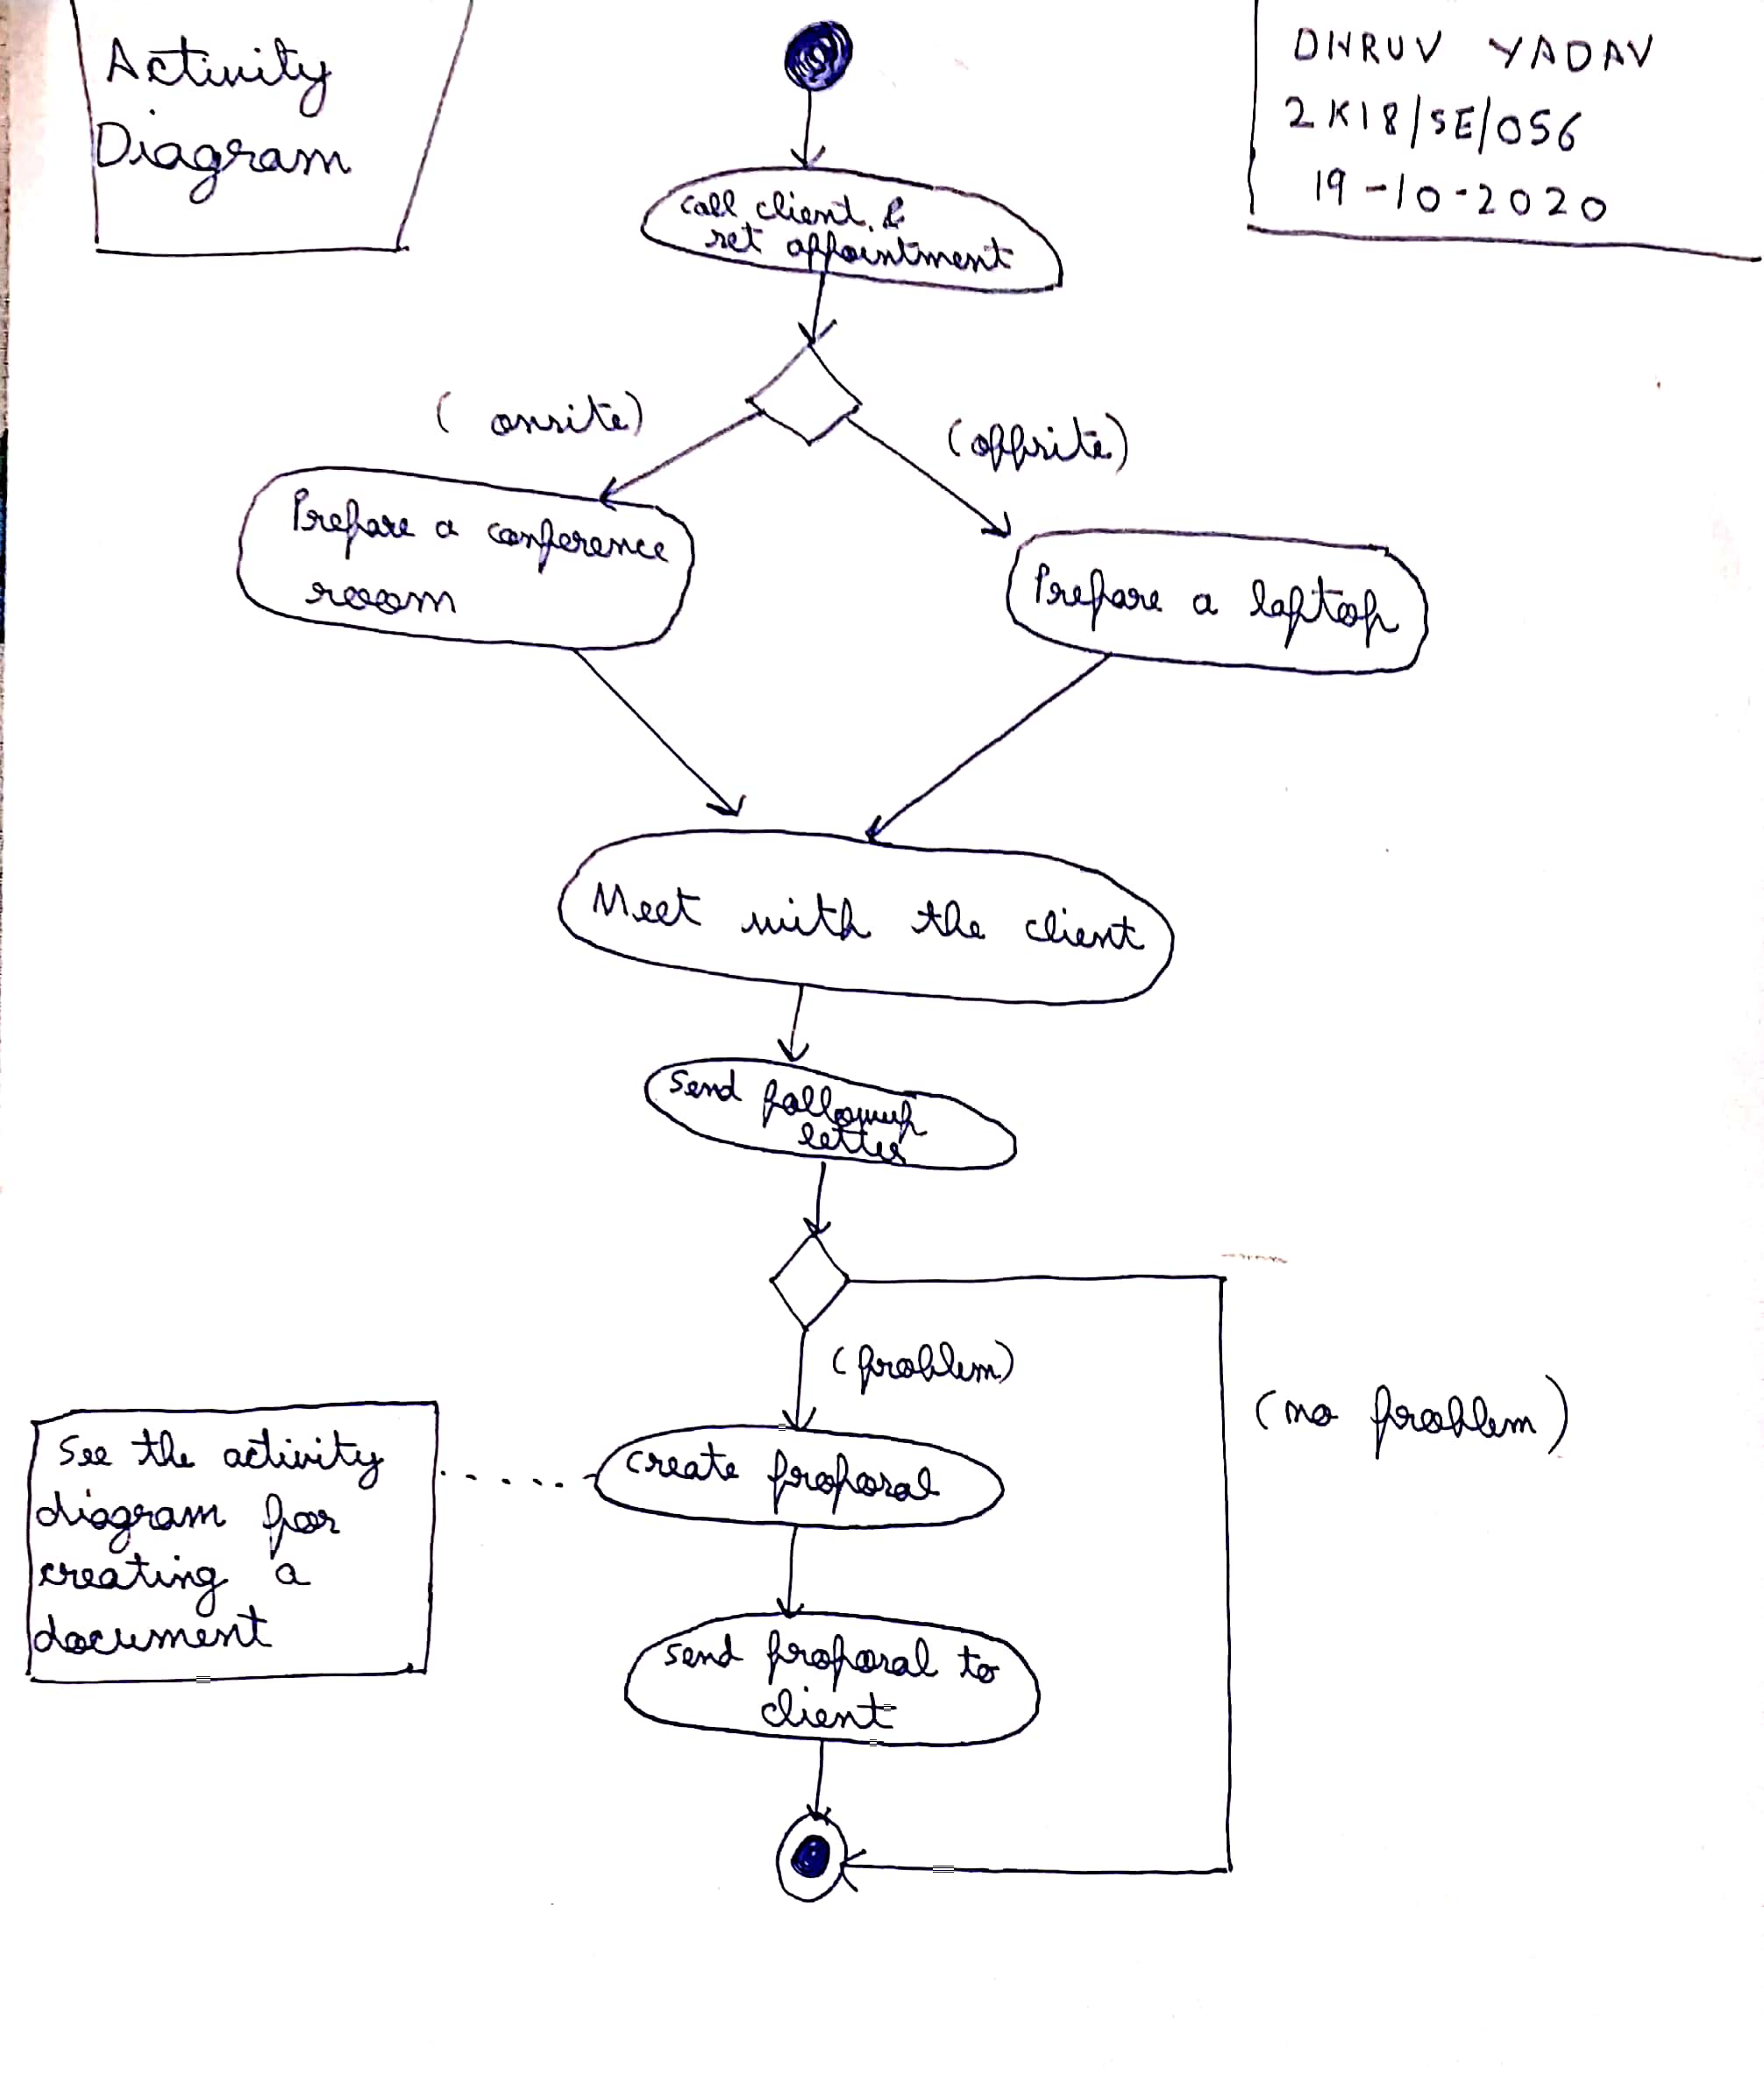 Activity
Diagram
DHRUV YADAV
2K18/SE/056
19-10-2020
call client &
set appointment
(onsite)
(offsite)
Prepare a conference
room
Prepare a laptop
Meet with the client
Send followup
letter
(problem)
(no problem)
See the activity
diagram for
creating a
document
create proposal
send proposal to
client